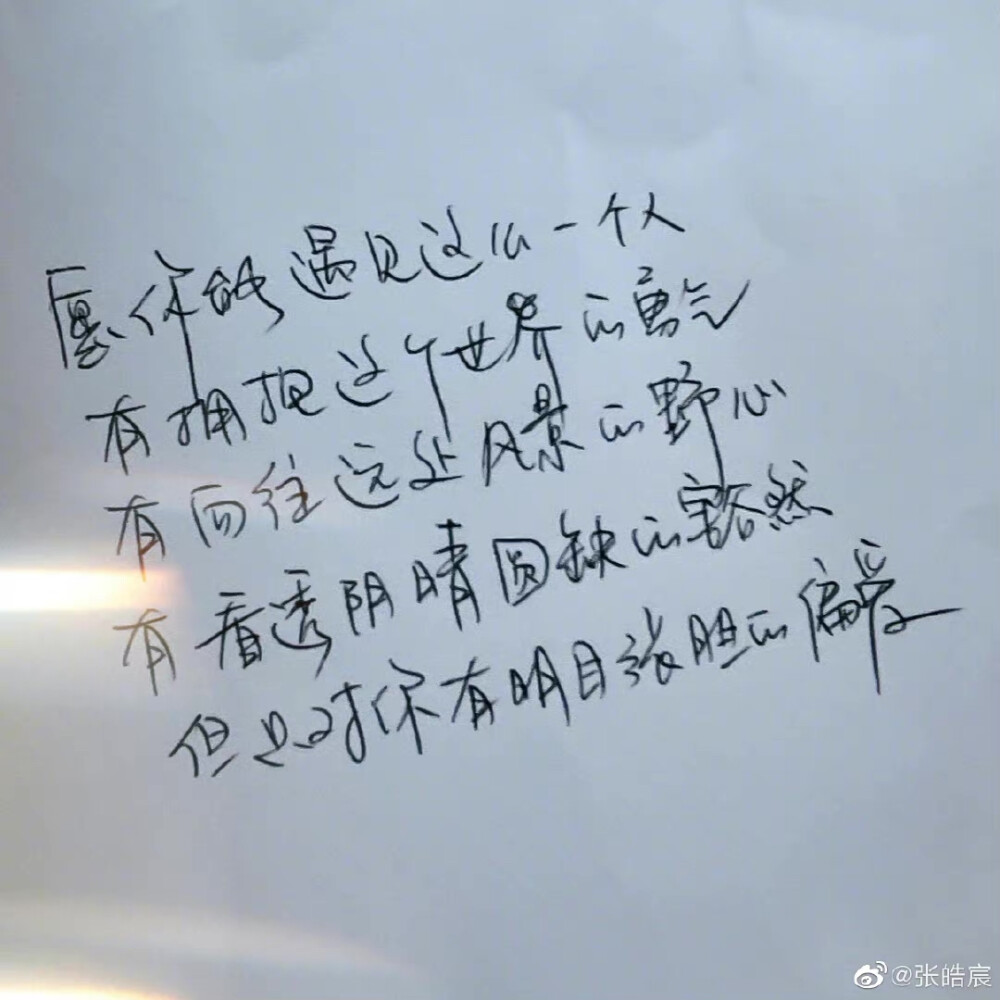 愿你能遇见这么一个人
有拥抱这个世界的勇气
有向往远处风景的野心
有看透阴晴圆缺的豁然
但只对你有明目张胆的偏爱
@张皓宸